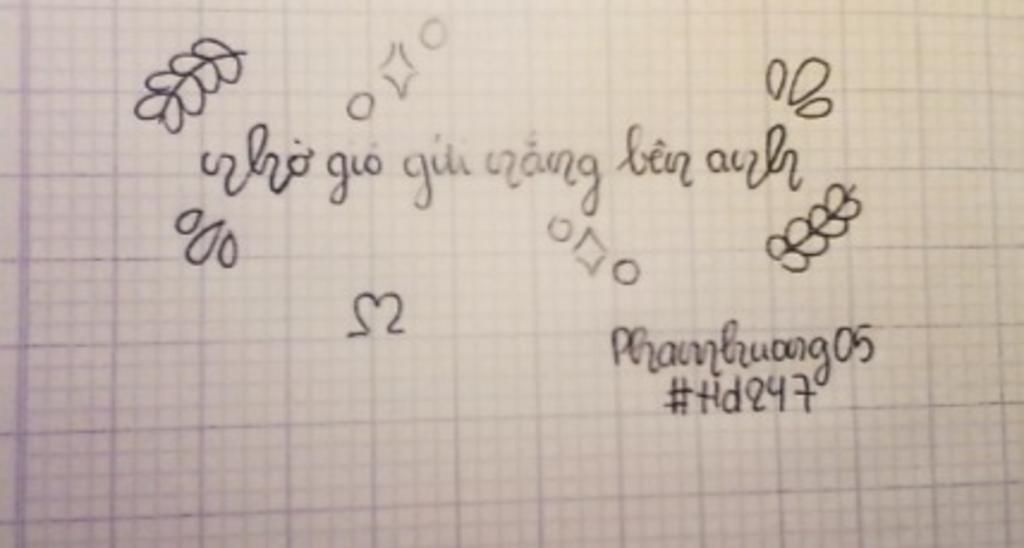 nhờ gió gửi nắng bên anh
Phamhuong05
#Hd247